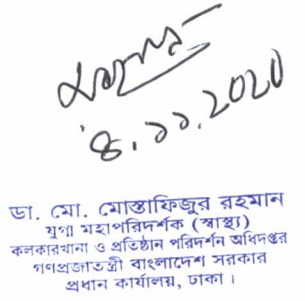 ৪.১১.২০২০
ডা. মো. মোস্তাফিজুর রহমান
যুগ্ম মহাপরিদর্শক (স্বাস্থ্য)
কলকারখানা ও প্রতিষ্ঠান পরিদর্শন অধিদপ্তর
গণপ্রজাতন্ত্রী বাংলাদেশ সরকার
প্রধান কার্যালয়, ঢাকা।